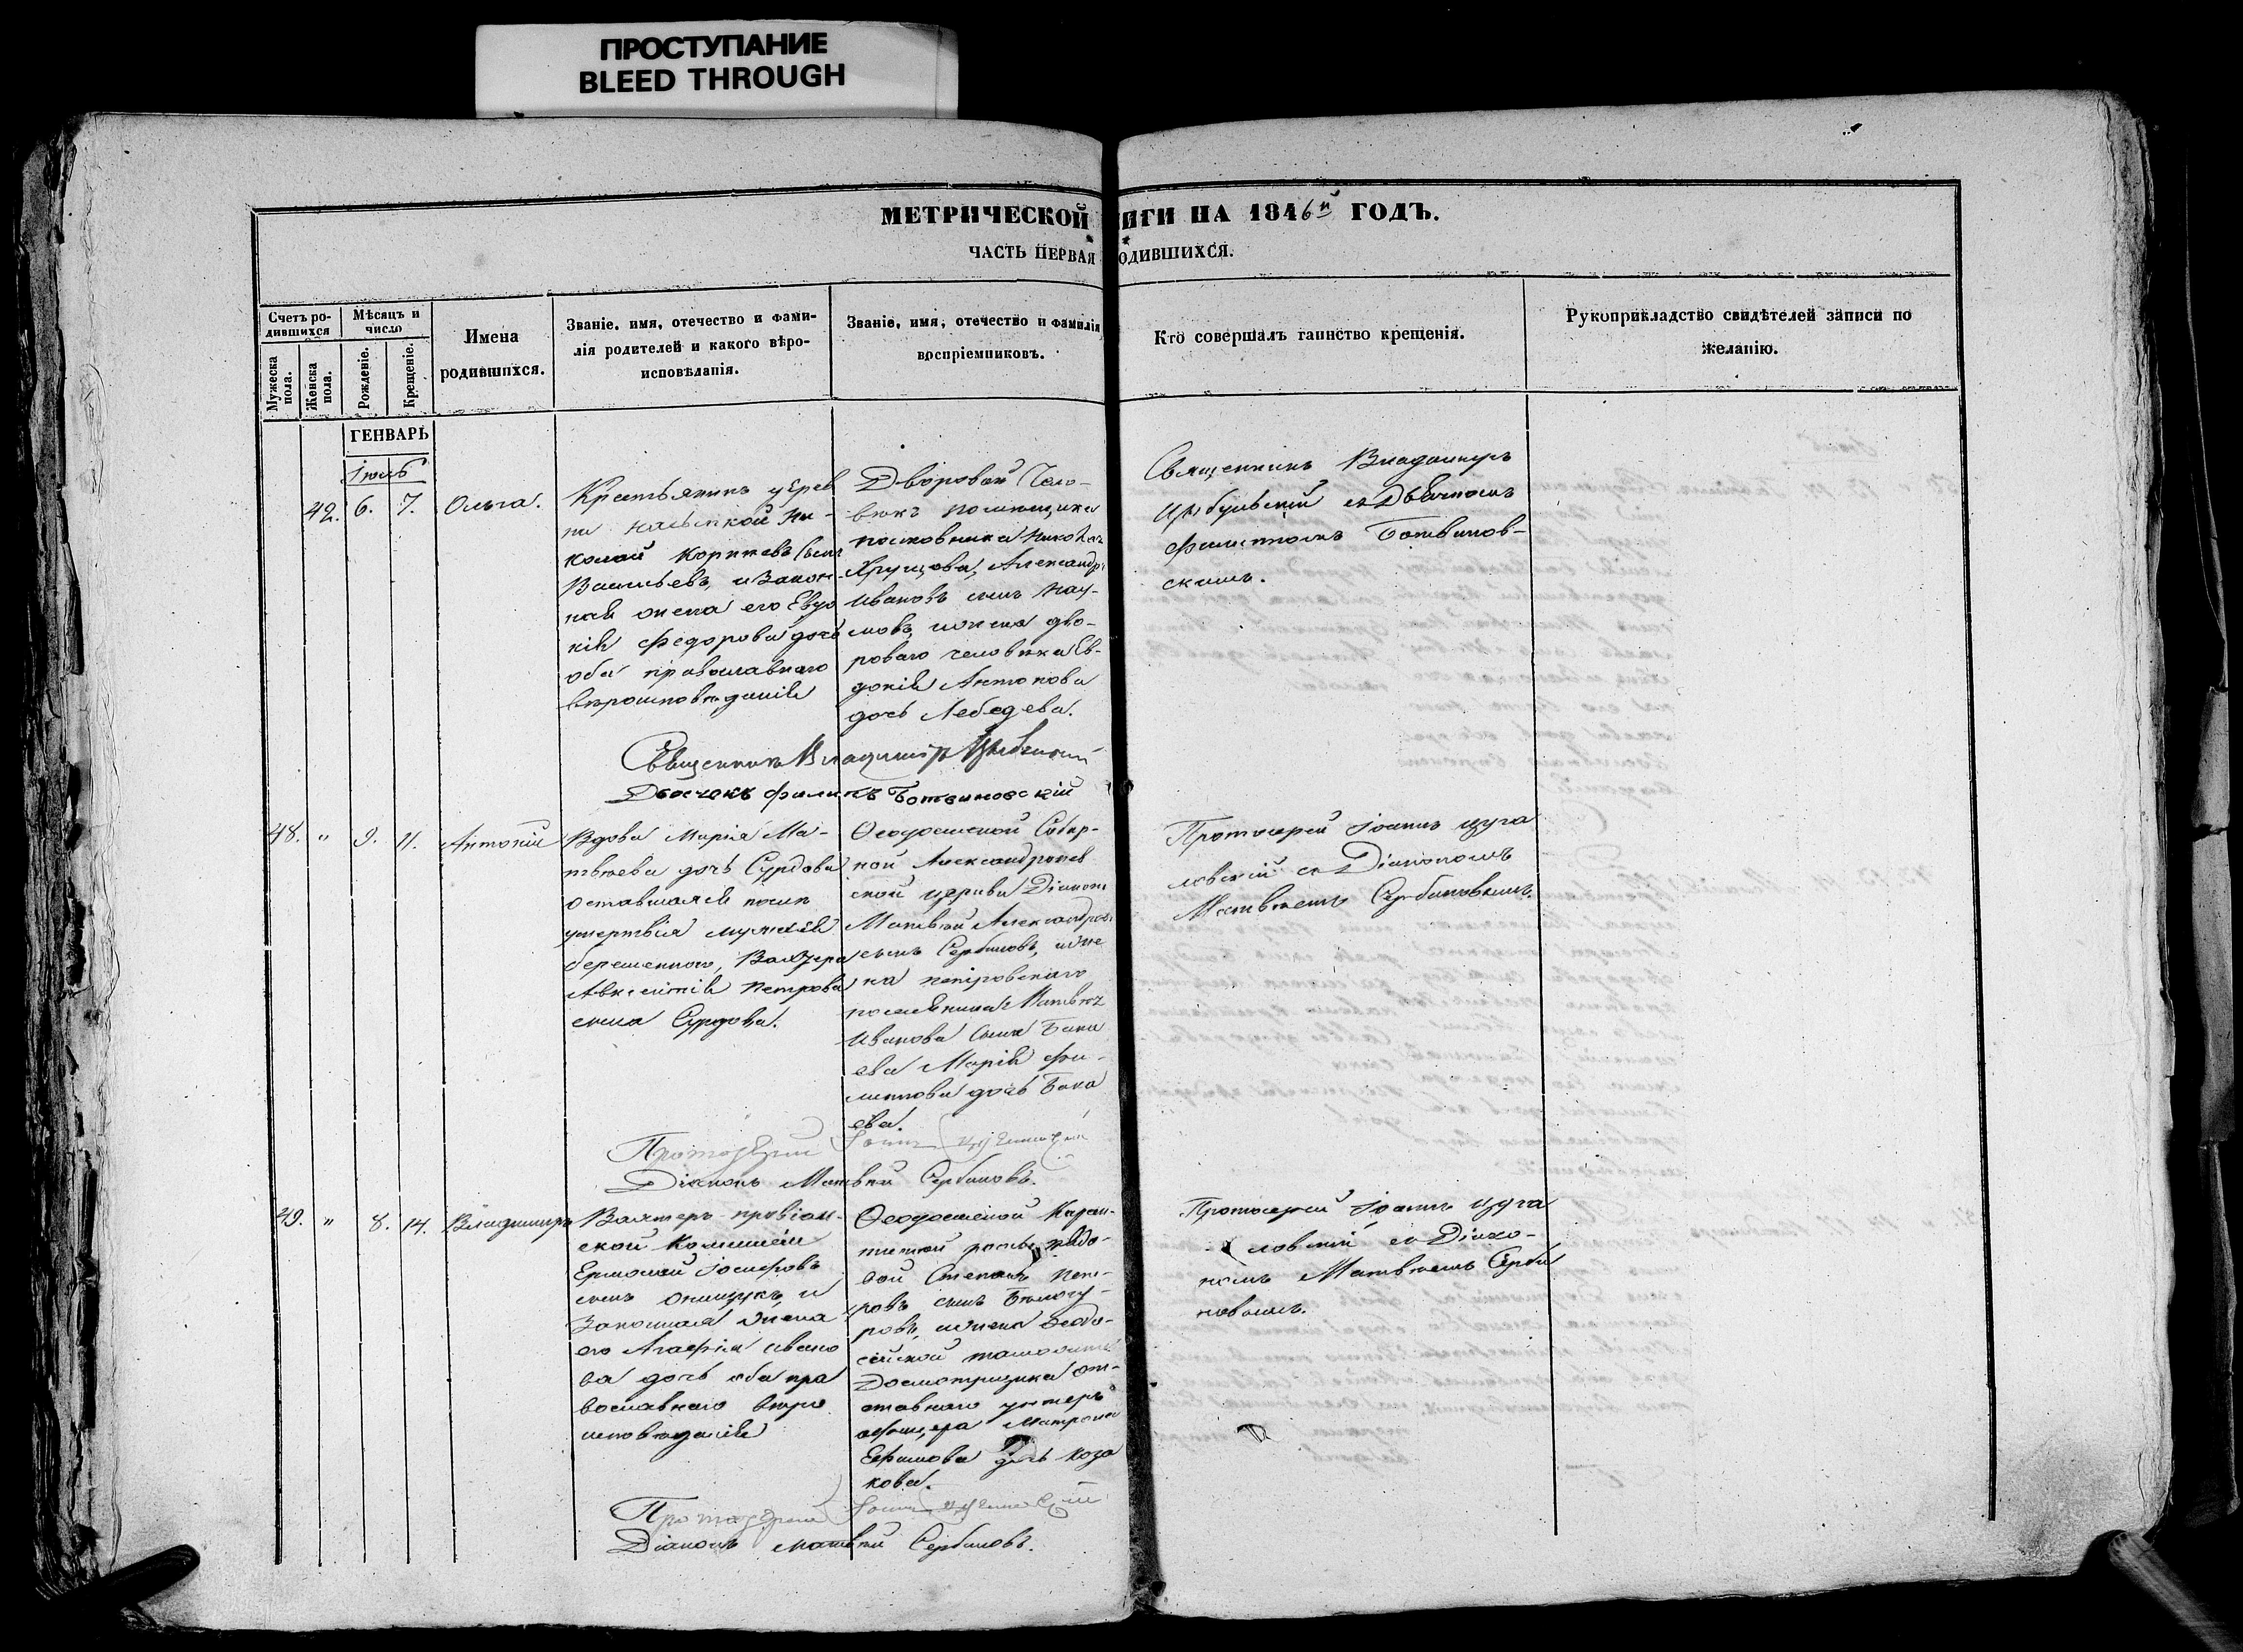 ПРОСТУПАНИЕ
BLEED THROUGH
МЕТРИЧЕСКОЙ ИГИ НА 1846й ГОДЪ.
ЧАСТЬ ПЕРВАЯ ОДИВШИХСЯ.
Счетъ ро-
дившихся
Мужеска
пола.
Женска
пола.
Мѣсяцъ и
число
Рожденіе.
Крещеніе.
Имена
родившихся.
Званіе, имя, отечество и фами-
лія родителей и какого вѣро-
исповѣданія.
Званіе, имя, отечество и фамилія
воспріемниковъ.
Кто совершалъ таинство крещенія.
Рукоприкладство свидѣтелей записи по
желанію.
ГЕНВАРЬ
Іюль
42. 6. 7. Ольга.
Крестьянинъ
колай Сынъ
Васильевъ, и Закон-
ная жена его Евдо
кія Федорова дочь
оба православнаго
вѣроисповѣданія
Дворовый Чело-
вѣкъ помѣщика
полковника Николая
Хрущова, Александръ
Ивановъ сынъ Нау-
мовъ, и жена дво-
роваго человѣка Ев-
докія Антонова
дочь Лебедева.
Священникъ Владимиръ
съ Дьячкомъ
Филиппомъ Ботвинов-
скимъ.
Священникъ Владиміръ
Дьячекъ Филипъ Ботвиновскій
48. " 9. 11. Антоній
Вдова Марія Ма-
твѣева дочь Сурдова
оставшаяся послѣ
умертвія мужа ея
беременною, Вахтера
Авксентія Петрова
сына Сурдова.
Ѳеодосійской Собор-
ной Александроневской
церкви Діаконъ
Матвѣй Александровъ
сынъ Сербиновъ, и же
на петровскаго
поселянина Матвѣя
Иванова сына Бака
ева Марія Фи-
липпова дочь Бака
ева.
Протоіерей Іоаннъ Цуга
ловскій съ Діакономъ
Матвѣемъ Сербиновымъ.
Протоіерей Іоаннъ
Діаконъ Матвѣй Сербиновъ.
49. " 8. 14. Владимиръ
Вахтеръ провіан-
ской Комиссіи
Ермолай Іосифовъ
сынъ Онищукъ и
Законная жена
его Агафія Ивано
ва дочь оба пра
вославнаго вѣро
исповѣданія
Ѳеодосійской Каран-
тинной роты рядо-
вой Степанъ Пет-
ровъ сынъ Бѣлогу-
ровъ, и жена Ѳеодо-
сійской таможни
Досмотрщика от-
ставнаго унтеръ
офицера Матрона
Ефимова дочь Коза
кова.
Протоіерей Іоаннъ Цуга
ловскій съ Діако-
номъ Матвѣемъ Серби
новымъ.
Протоіерей Іоаннъ
Діаконъ Матвѣй Сербиновъ.